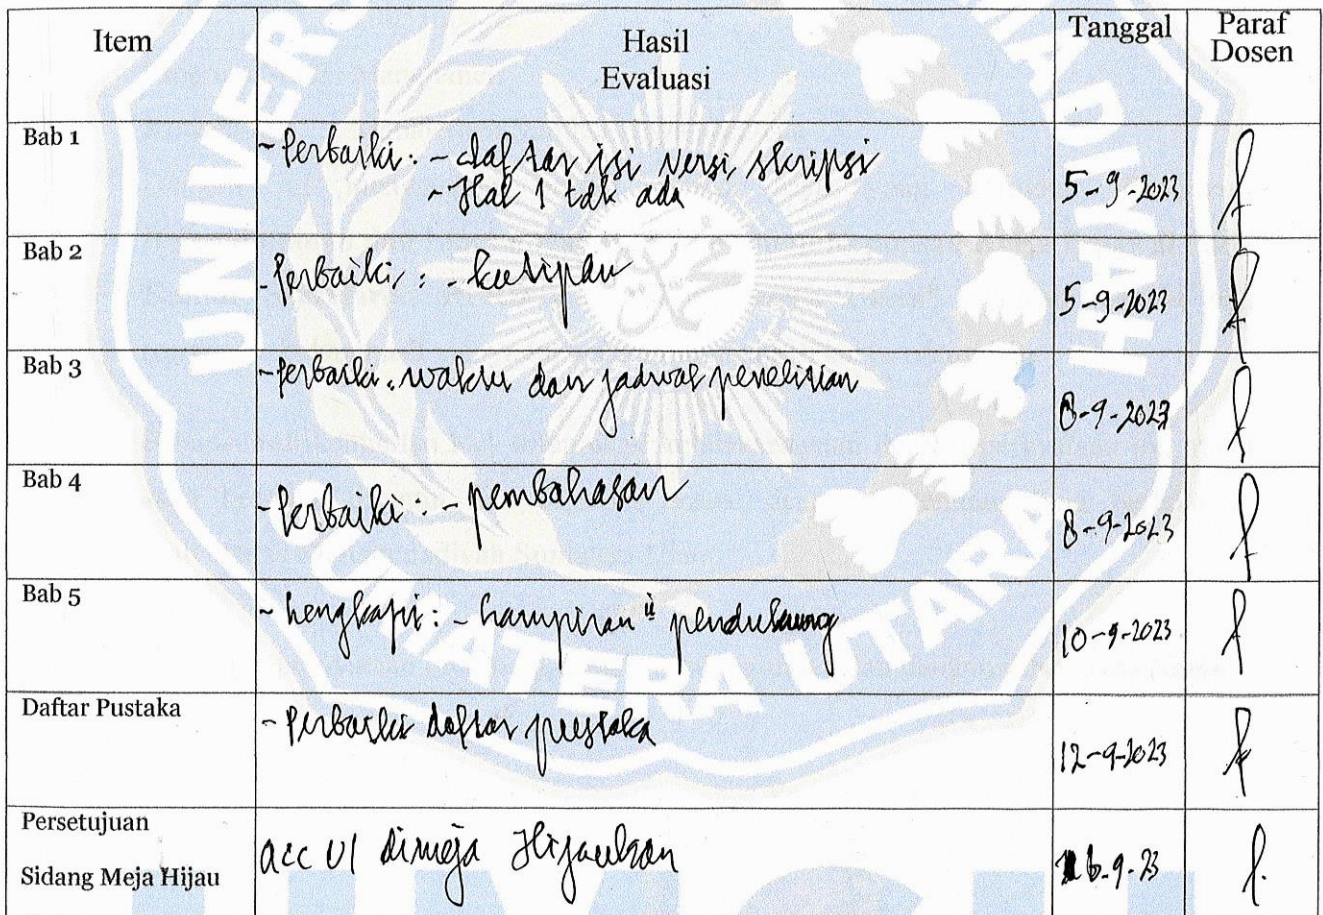 Item Hasil Evaluasi Tanggal Paraf Dosen
Bab 1
- Perbaiki: - daftar isi versi skripsi
- Hal 1 tdk ada
5-9-2023
Bab 2
- Perbaiki: - kutipan
5-9-2023
Bab 3
- Perbaiki: waktu dan jadwal penelitian
8-9-2023
Bab 4
- Perbaiki: - pembahasan
8-9-2023
Bab 5
- Lengkapi: - Lampiran" pendukung
10-9-2023
Daftar Pustaka
- Perbaiki daftar pustaka
12-9-2023
Persetujuan
Sidang Meja Hijau
acc U/ dimeja Hijaukan
9-23
UNIVERSITAS
SUMATERA UTARA